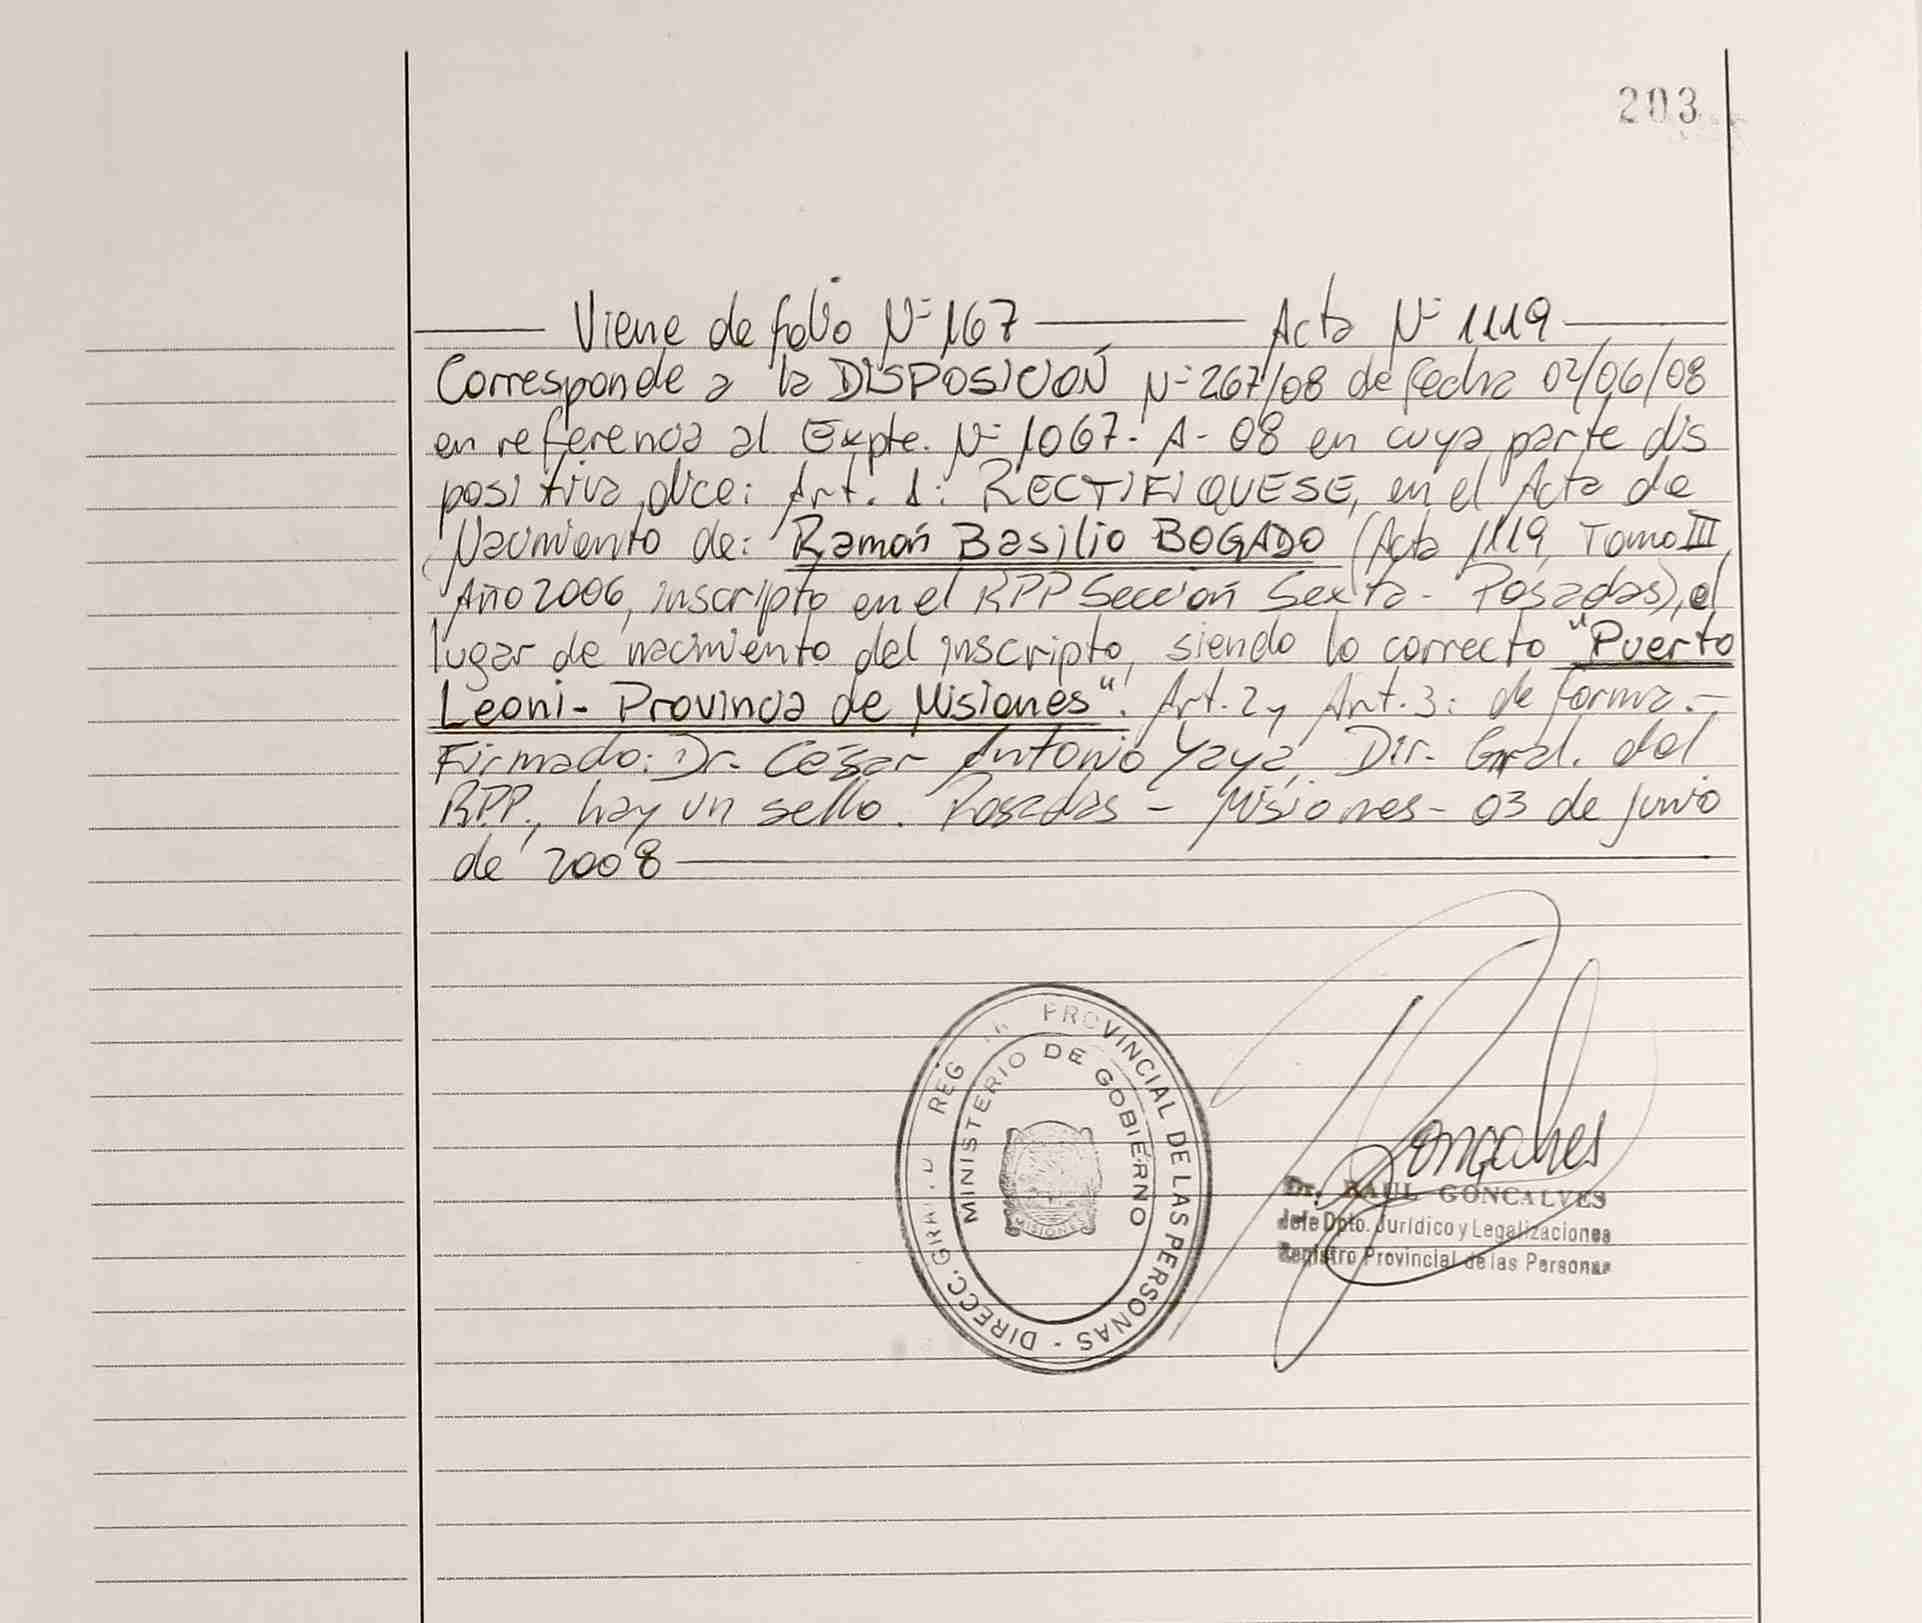 203
Viene de folio Nº 167 Acta Nº 1119
Corresponde a la DISPOSICIÓN Nº 267/08 de fecha 02/06/08
en referencia al Expte. Nº 1067- A- 08 en cuya parte dis
positiva dice: Art. 1: RECTIFIQUESE, en el Acta de
Nacimiento de: Ramón Basilio BOGADO (Acta 1119, Tomo III,
Año 2006, inscripto en el RPP Sección Sexta - Posadas), el
lugar de nacimiento del inscripto, siendo lo correcto "Puerto
Leoni- Provincia de Misiones". Art. 2 y Art. 3: de forma.-
Firmado: Dr. César Antonio Yaya, Dir. Gral. del
RPP., hay un sello. Posadas - Misiones- 03 de junio
de 2008
PROVINCIAL DE LAS PERSONAS - DIRECC. GRAL. D REG
MINISTERIO DE GOBIERNO
MISIONES
Goncalves
Dr. RAUL GONCALVES
Jefe Dpto. Jurídico y Legalizaciones
Registro Provincial de las Personas